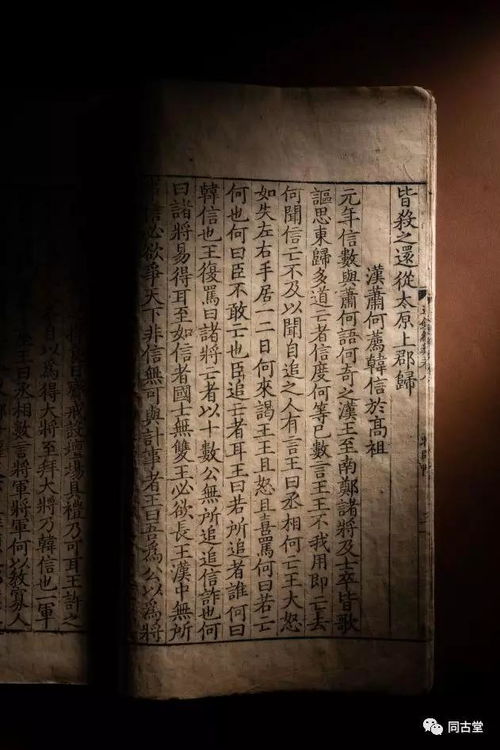 皆殺之還從太原上郡歸
漢蕭何薦韓信於髙祖
元年信數與蕭何語何奇之漢王至南鄭諸將及士卒皆歌
謳思東歸多道亡者信度何等已數言王王不我用即亡去
何聞信亡不及以聞自追之人有言王曰丞相何亡王大怒
如失左右手居一二日何來謁王王且怒且喜罵何曰若亡
何也何曰臣不敢亡也臣追亡者耳王曰若所追者誰何曰
韓信也王復罵曰諸將亡者以十數公無所追追信詐也何
曰諸將易得耳至如信者國士無雙王必欲長王漢中無所
信必欲爭天下非信無可與計事者王曰吾為公以為將
戒設壇場具禮乃可耳王許之
自以為得大將至拜大將乃韓信也一軍
王曰丞相數言將軍將軍何以敎寡人
同古堂